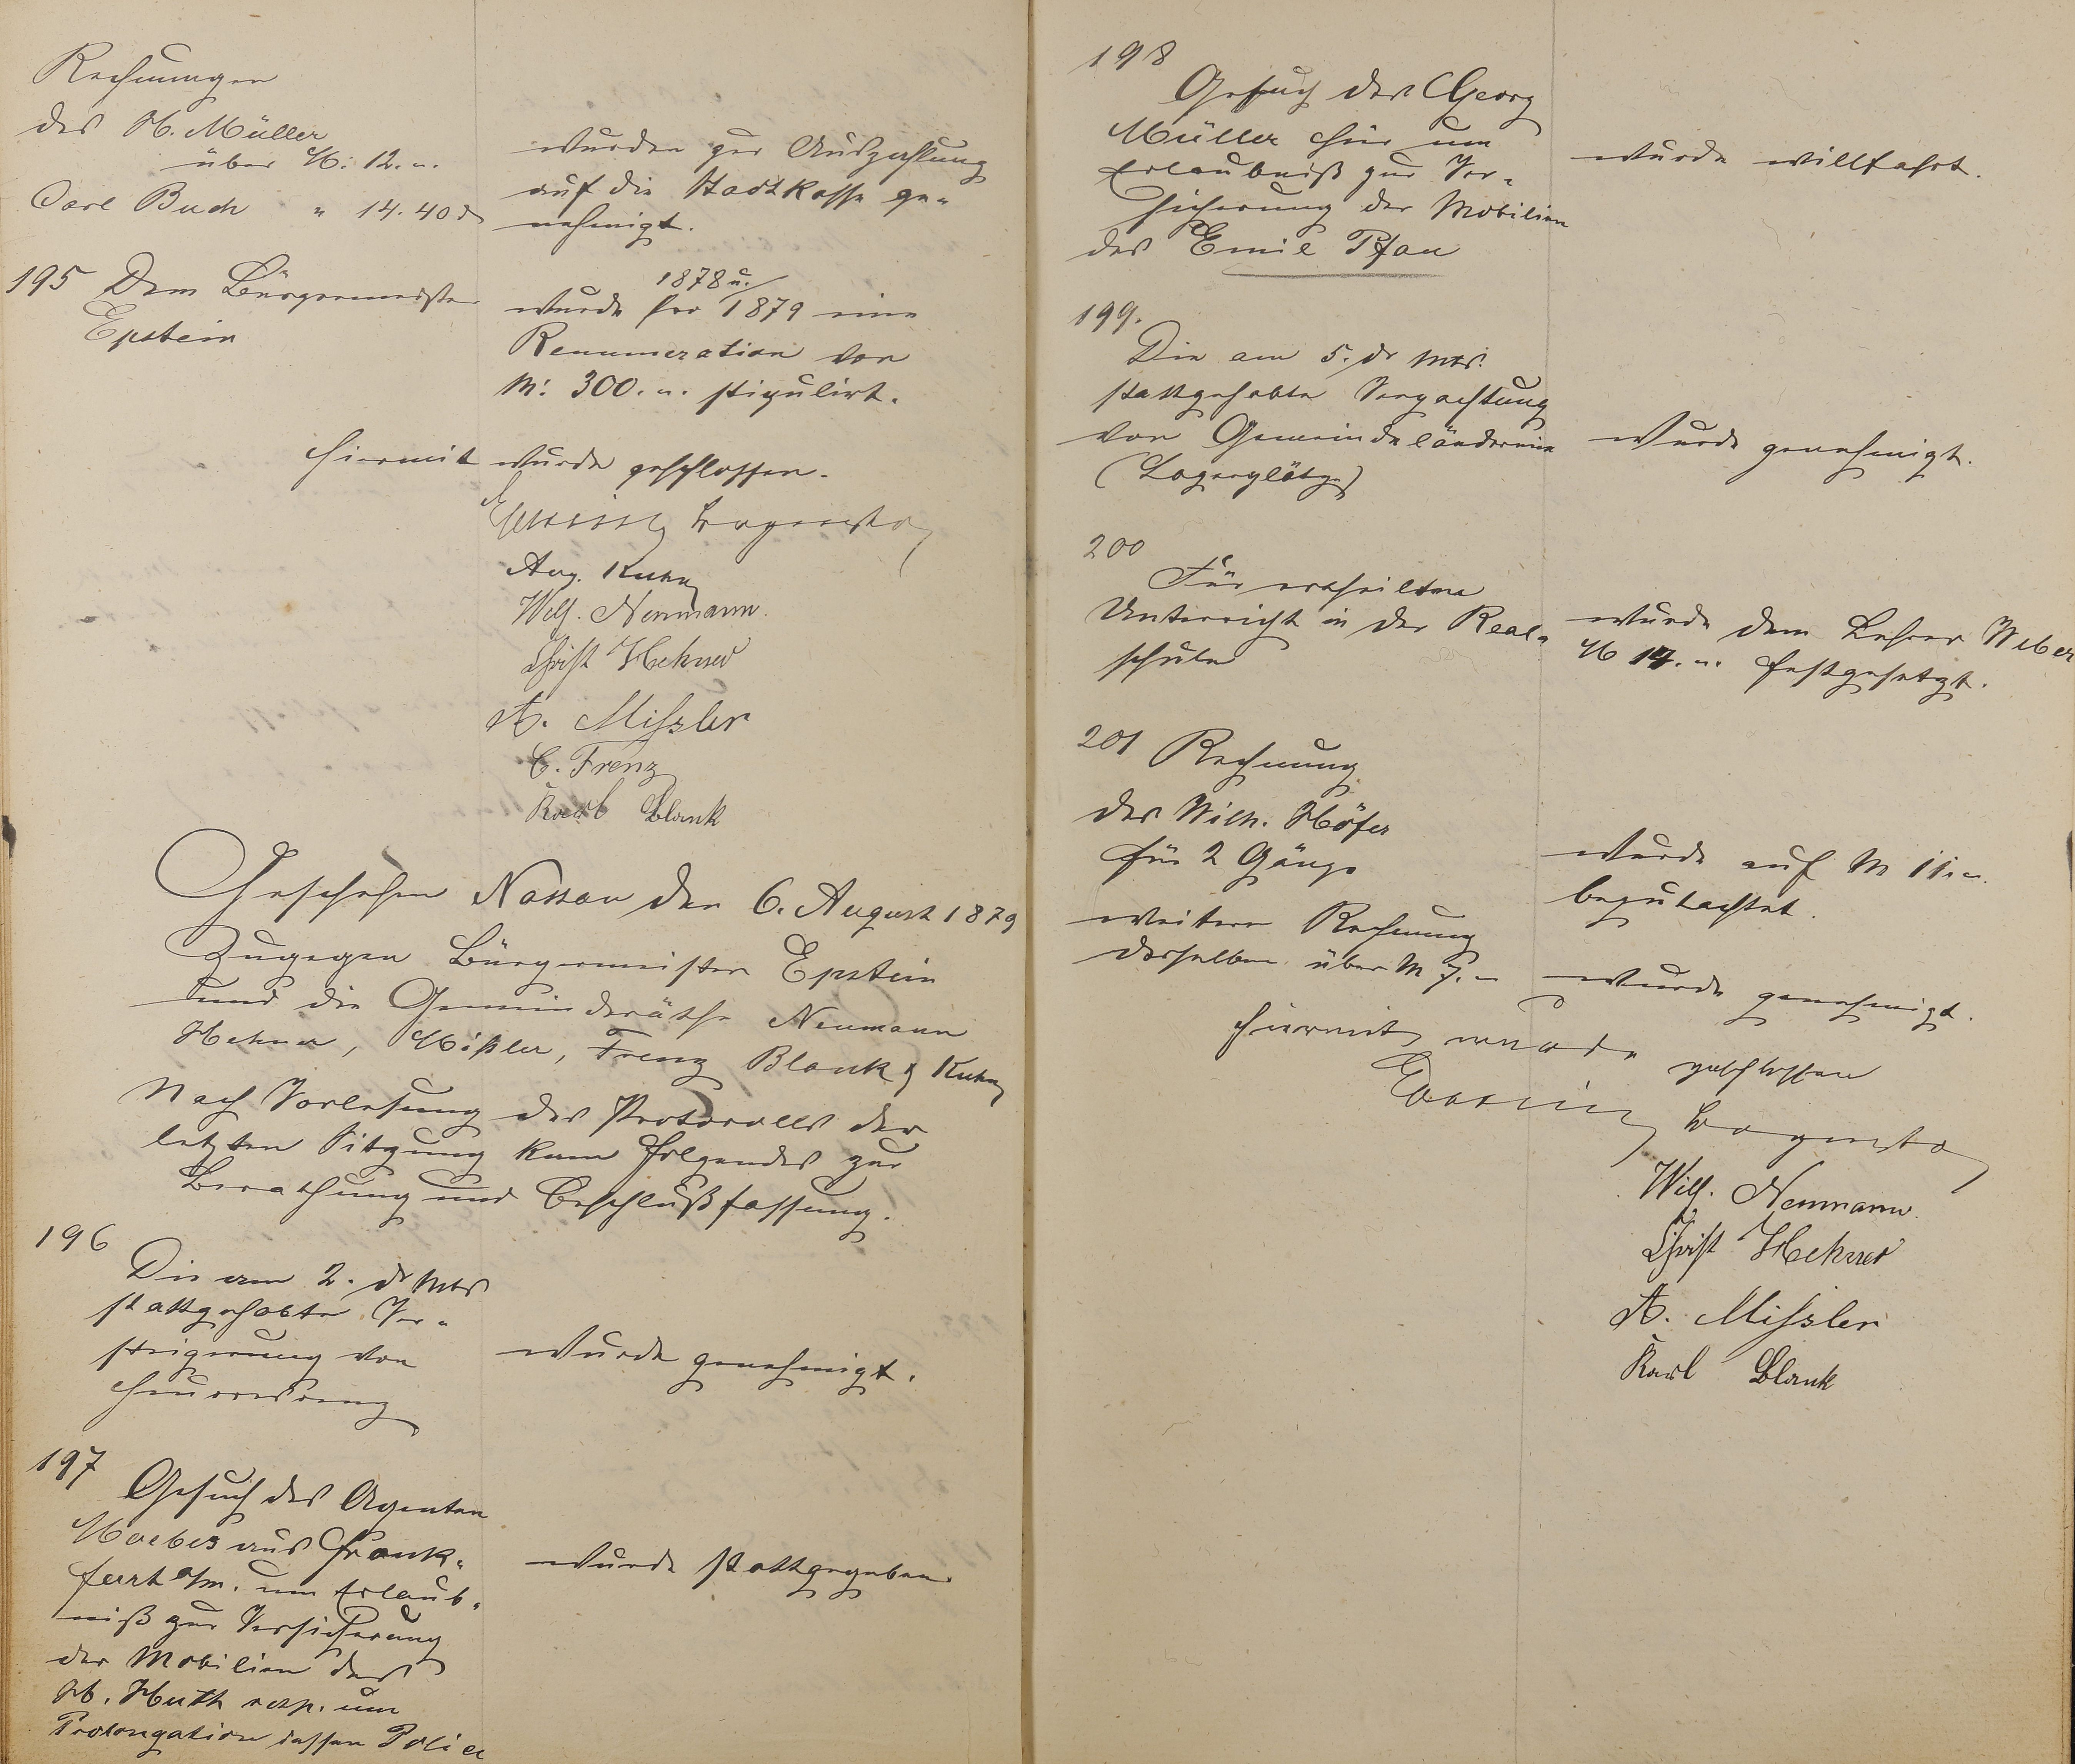 Rechnungen
des H. Müller
über M: 12.„.
Carl Buch „ 14.40 d
wurden zur Auszahlung
auf die Stadtkasse ge-
nehmigt.
195 Dem Bürgermeister
Epstein
1878 u.
wurde pro 1879 eine
Renumeration von
M: 300.„. stipulirt.
Hiermit wurde geschlossen.
Aug. Kuhn
Wilh. Neumann.
Christ Hehner
A. Missler
C. Frenz
Karl Blank
Geschehen Nassau den 6. August 1879
Zugegen Bürgermeister Epstein
und die Gemeinderäthe Neumann
Hehner, Mißler, Frenz Blank & Kuhn
Nach Vorlesung des Protocolls der
letzten Sitzung kam folgendes zur
Berathung und Beschlußfassung.
196
Die am 2. ds Mts
stattgehabte Ver-
steigerung von
wurde genehmigt.
197
Gesuch des Agenten
aus Frank-
furt a/m. um Erlaub-
niß zur Versicherung
der Mobilien des
H. Huth resp. um
Prolongation dessen Police
wurde stattgegeben.
198
Gesuch des Georg
Müller hier um
Erlaubniß zur Ver-
sicherung der Mobilien
des Emil Pfau
wurde willfahrt.
199.
Die am 5. ds Mts.
stattgehabte Verpachtung
von Gemeindeländereien
(Lagerplätze)
wurde genehmigt.
200
Für ertheilten
Unterricht in der Real-
schule
wurde dem Lehrer Weber
M 14.„. festgesetzt.
201 Rechnung
des Wilh. Höfer
für 2 Gänge
wurde auf M 11.„.
begutachtet.
weitere Rechnung
desselben über M 7.–
wurde genehmigt.
Hiermit wurde geschlossen
Wilh. Neumann.
Christ Hehner
A. Missler
Karl Blank